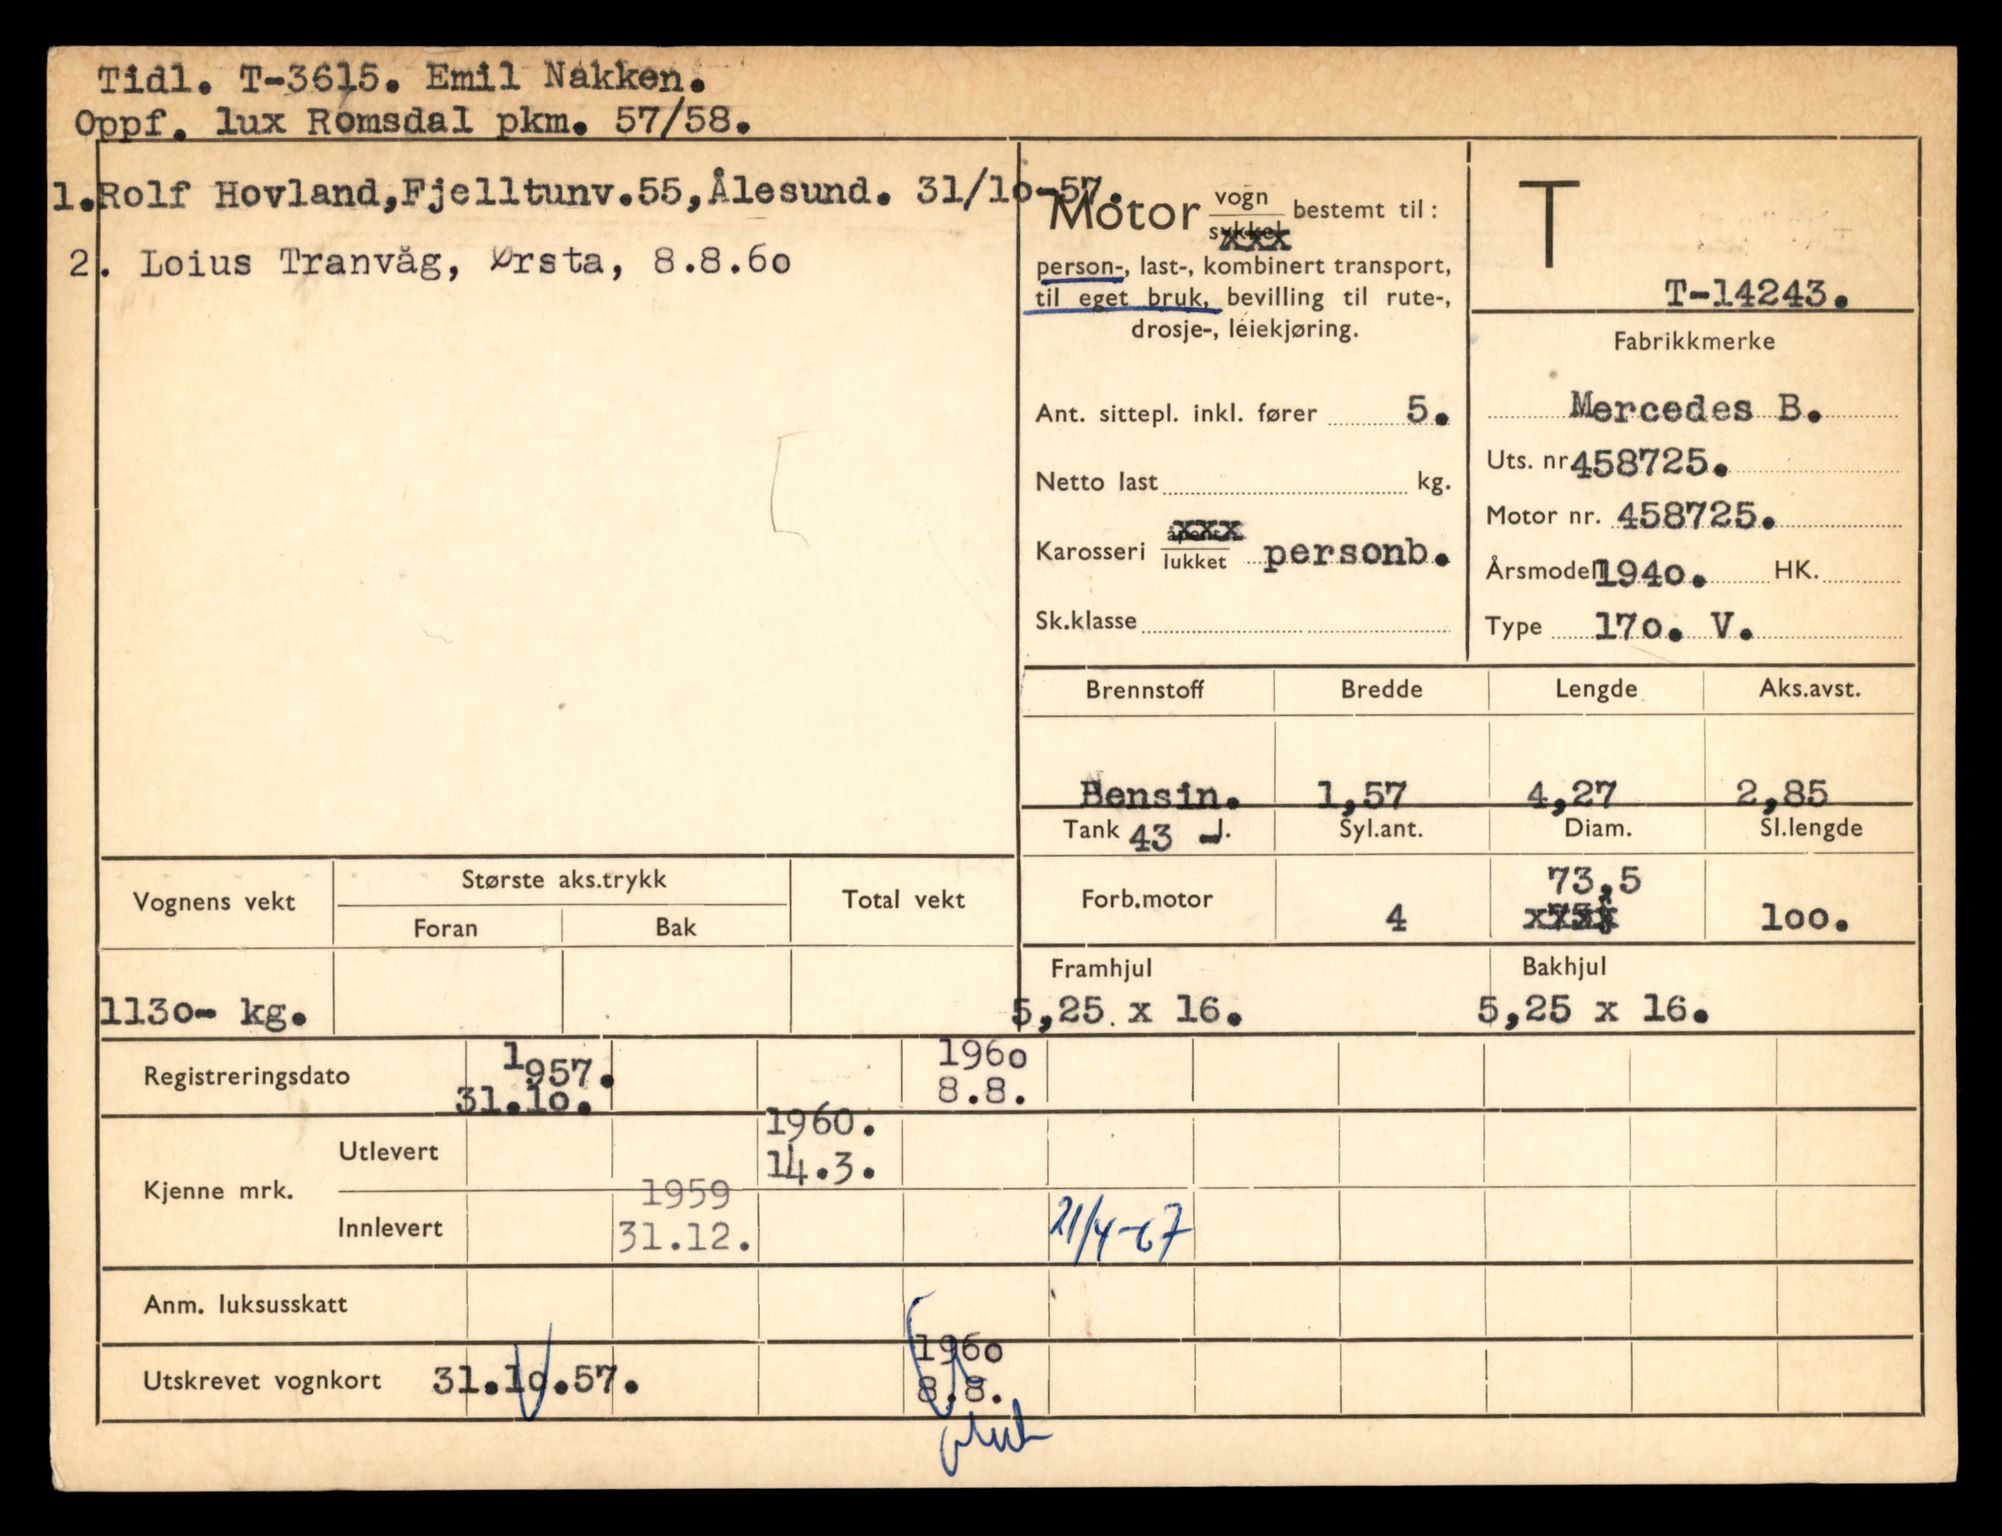 Tidl. T-3615. Emil Nakken.
Oppf. lux Romsdal pkm. 57/58.
1.Rolf Hovland,Fjelltunv.55,Ålesund. 31/10-57.
2. Loius Tranvåg, Ørsta, 8.8.60
Motor vogn bestemt til:
sykkel xxx
person-, last-, kombinert transport,
til eget bruk, bevilling til rute-,
drosje-, leiekjøring.
Ant. sittepl. inkl. fører 5.
Netto last kg.
Karosseri åpent xxx
lukket personb.
Sk.klasse
T
T-14243.
Fabrikkmerke
Mercedes B.
Uts. nr 458725.
Motor nr. 458725.
Årsmodell 1940. HK.
Type 170. V.
Brennstoff Bredde Lengde Aks.avst.
Bensin. 1,57 4,27 2,85
Tank 43 - l. Syl.ant. Diam. Sl.lengde
73,5
Forb.motor 4 100.
Vognens vekt Største aks.trykk Total vekt
Foran Bak
1130- kg.
Framhjul Bakhjul
5,25 x 16. 5,25 x 16.
Registreringsdato 1957. 1960
31.10. 8.8.
Kjenne mrk. Utlevert 1960.
14.3.
Innlevert 1959
31.12. 21/4-67
Anm. luksusskatt
Utskrevet vognkort 31.10.57. 1960
8.8.